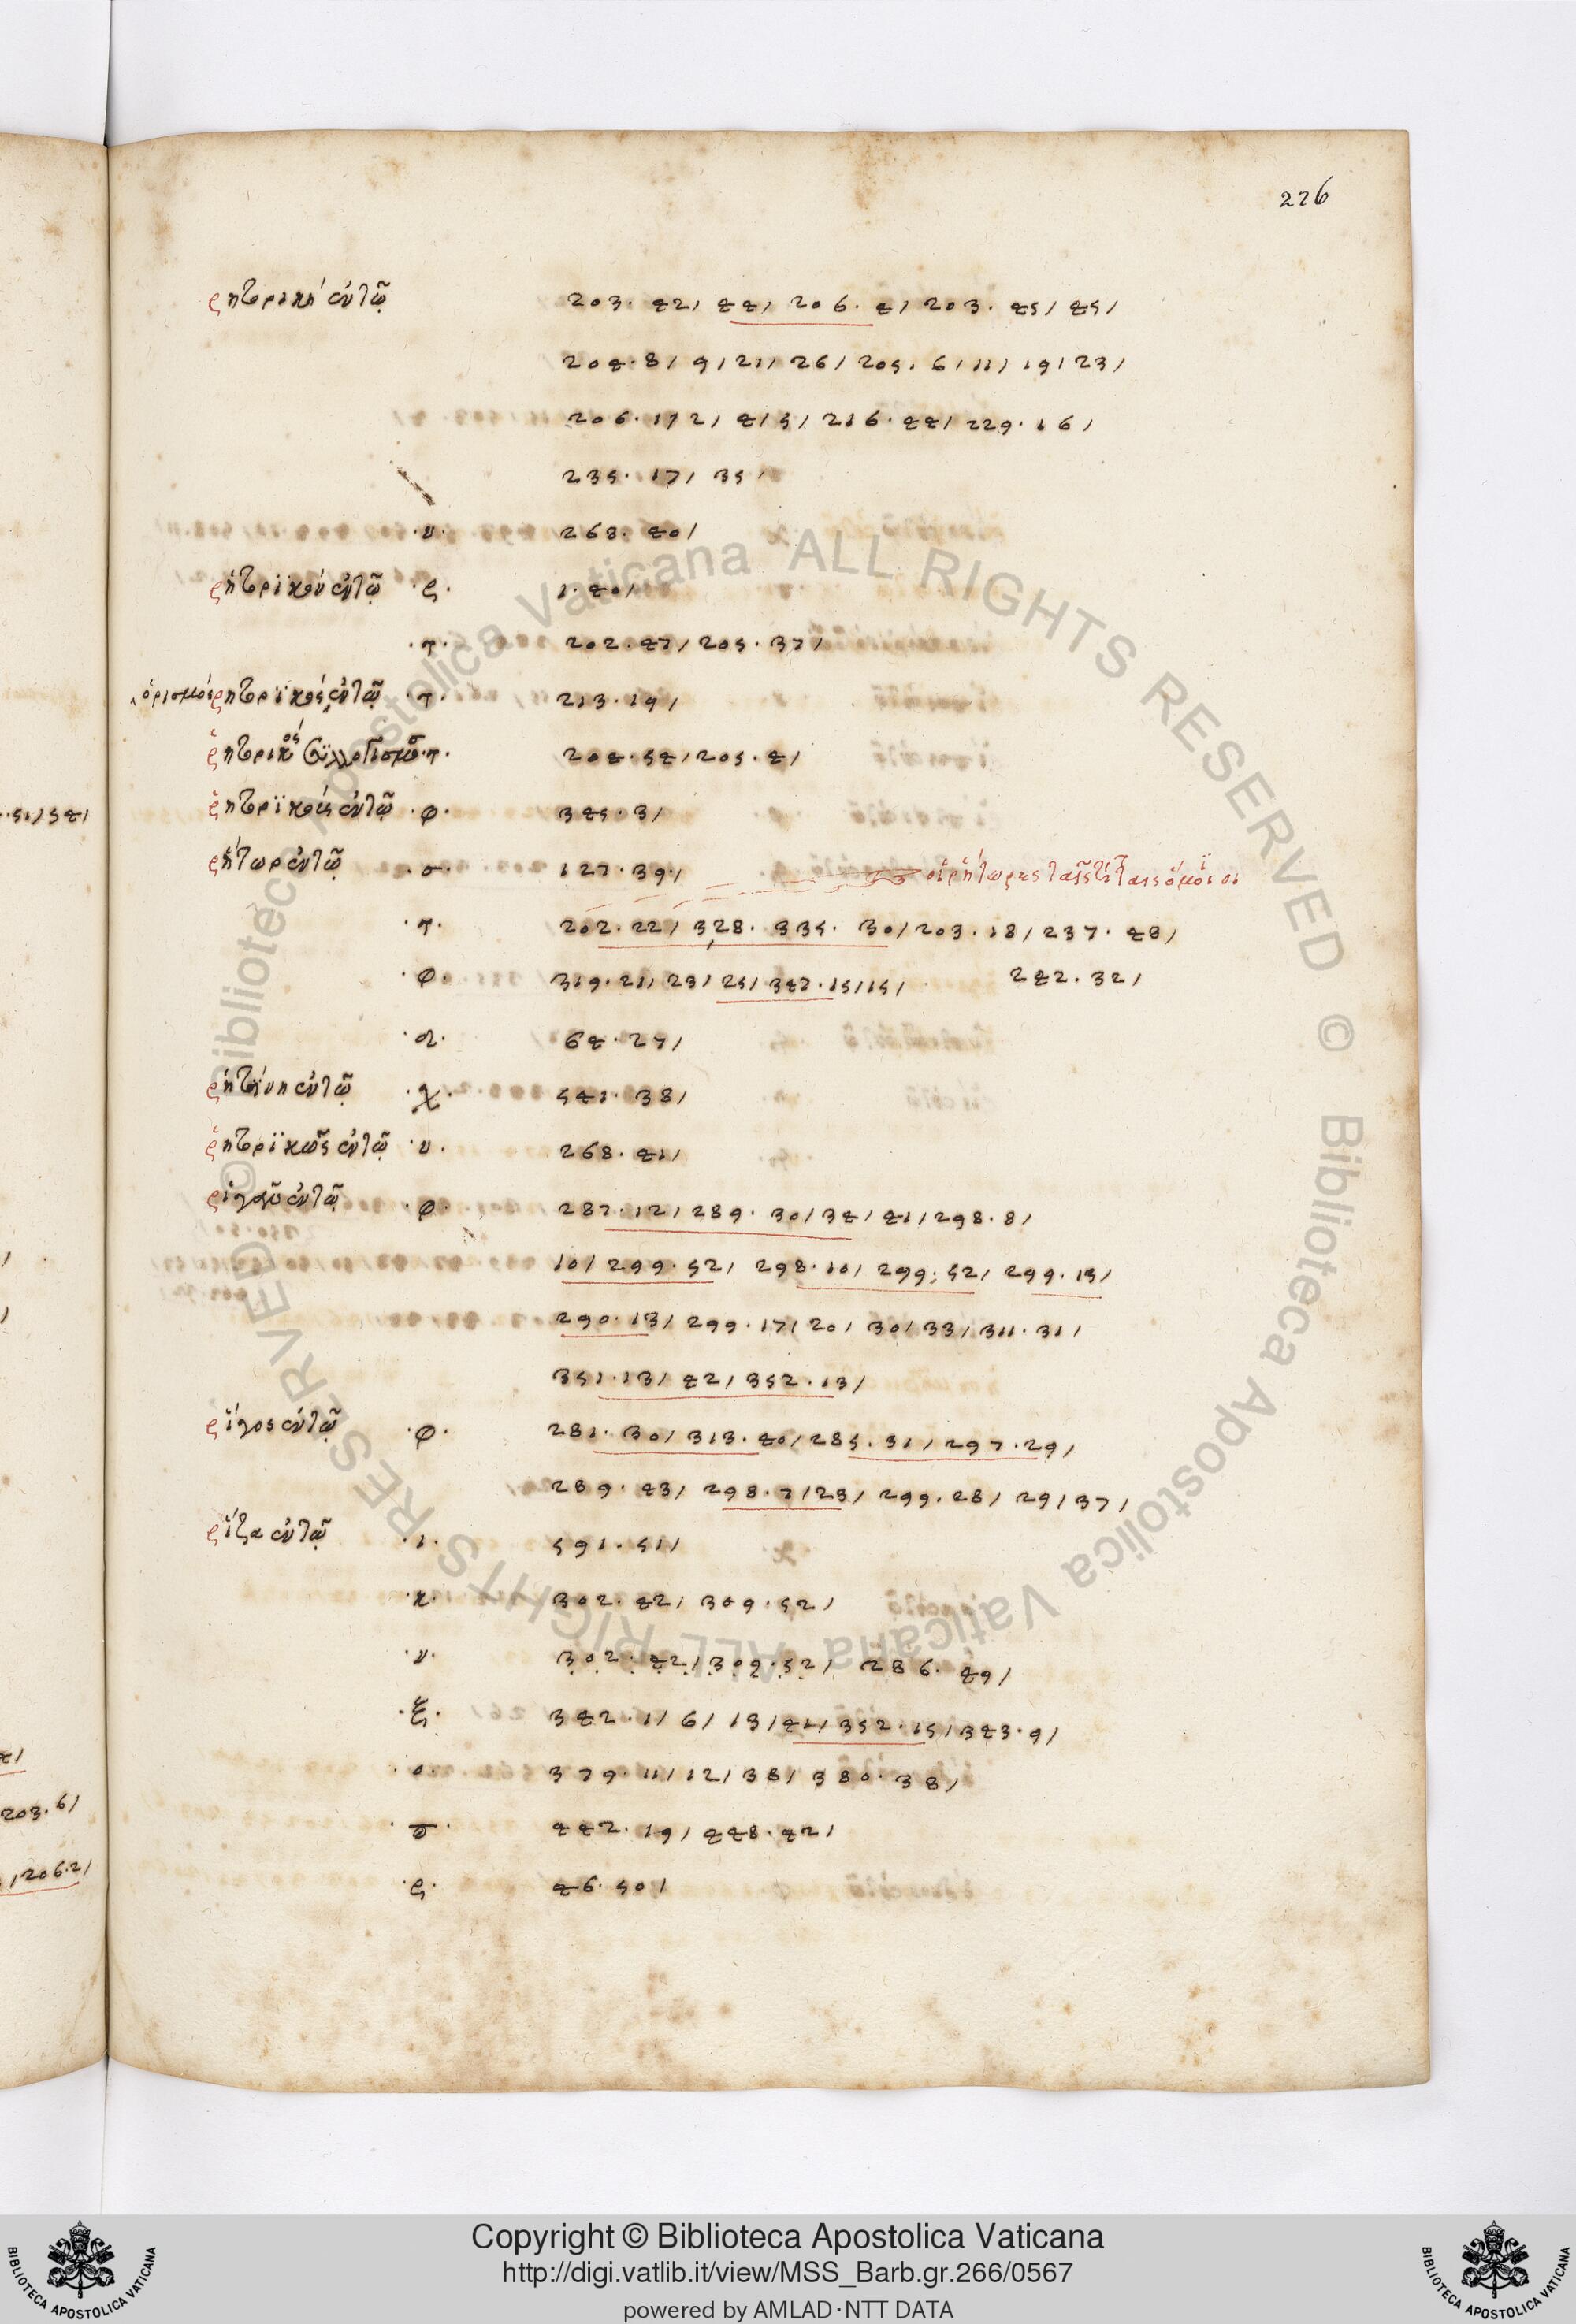 276
ῥητορικὴ ἐν τῷ 203. 42/ 44/ 206. 4/ 203. 45/ 45/
204. 8/ 9/ 21/ 26/ 205. 6/ 11/ 19/ 23/
206. 1/ 2/ 4/ 5/ 216. 44/ 229. 16/
235. 17/ 35/
·υ· 268. 40/
ῥητορικὸν ἐν τῷ ·ς· 1. 40/
·π· 202. 47/ 205. 37/
ὁρισμὸς ῥητορικὸς ἐν τῷ ·π· 213. 19/
ῥητορικὸς συλλογισμὸς ·π· 204. 54/ 205. 4/
ῥητορικοῖς ἐν τῷ ·φ· 345. 3/
ῥήτωρ ἐν τῷ ·σ· 127. 39/ οἱ ῥήτωρες
·π· 202. 22/ 328. 335. 30/ 203. 18/ 237. 48/
·φ· 319. 21/ 23/ 25/ 347. 15/ 15/ 242. 32/
64. 27/
ῥητίνη ἐν τῷ ·χ· 541. 38/
ῥητορικῶς ἐν τῷ ·υ· 268. 41/
ῥιγοῦ ἐν τῷ ·φ· 287. 12/ 289. 30/ 34/ 41/ 298. 8/
10/ 299. 52/ 298. 10/ 299. 52/ 299. 13/
290. 13/ 299. 17/ 20/ 30/ 33/ 311. 31/
351. 13/ 42/ 352. 13/
ῥῖγος ἐν τῷ ·φ· 281. 30/ 313. 40/ 285. 31/ 297. 29/
289. 43/ 298. 7/ 23/ 299. 28/ 29/ 37/
ῥίζα ἐν τῷ ·ι· 591. 51/
·κ· 302. 42/ 309. 52/
·ν· 302. 42/ 309. 52/ 286. 49/
·ξ· 342. 1/ 6/ 13/ 41/ 352. 15/ 343. 9/
·ο· 379. 11/ 12/ 38/ 380. 38/
442. 19/ 448. 42/
·ς· 46. 50/
·51/54/
203. 6/
/206. 2/
© Biblioteca Apostolica Vaticana ALL RIGHTS RESERVED © Biblioteca Apostolica Vaticana ALL RIGHTS RESERVED
Copyright © Biblioteca Apostolica Vaticana
http://digi.vatlib.it/view/MSS_Barb.gr.266/0567
powered by AMLAD·NTT DATA
BIBLIOTECA APOSTOLICA VATICANA
BIBLIOTECA APOSTOLICA VATICANA